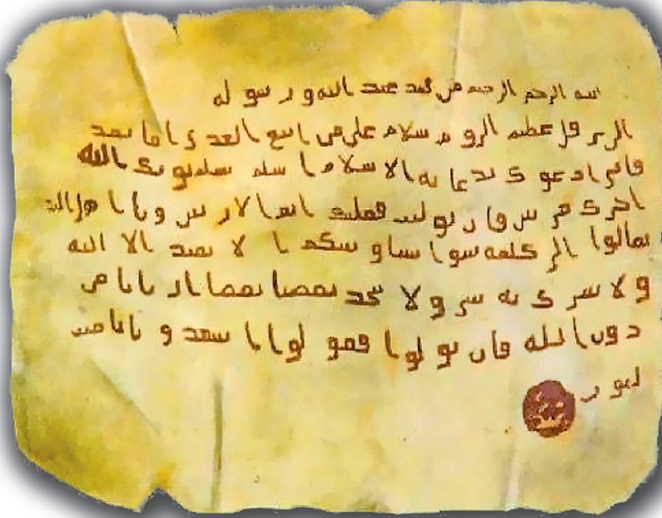 بسم الله الرحمن الرحيم من محمد عبد الله ورسوله
الى هرقل عظيم الروم سلام على من اتبع الهدى اما بعد
فانى ادعوك بدعاية الاسلام اسلم تسلم يوتك الله
اجرك مرتين فان توليت فعليك اثم الاريسين ويا اهل
تعالوا الى كلمة سوا بيننا وبينكم ا لا نعبد الا الله
ولا نشرك به شيا ولا يتخذ بعضنا بعضا اربابا من
دون الله فان تولوا فقولوا اشهدوا بانا مس
لمون